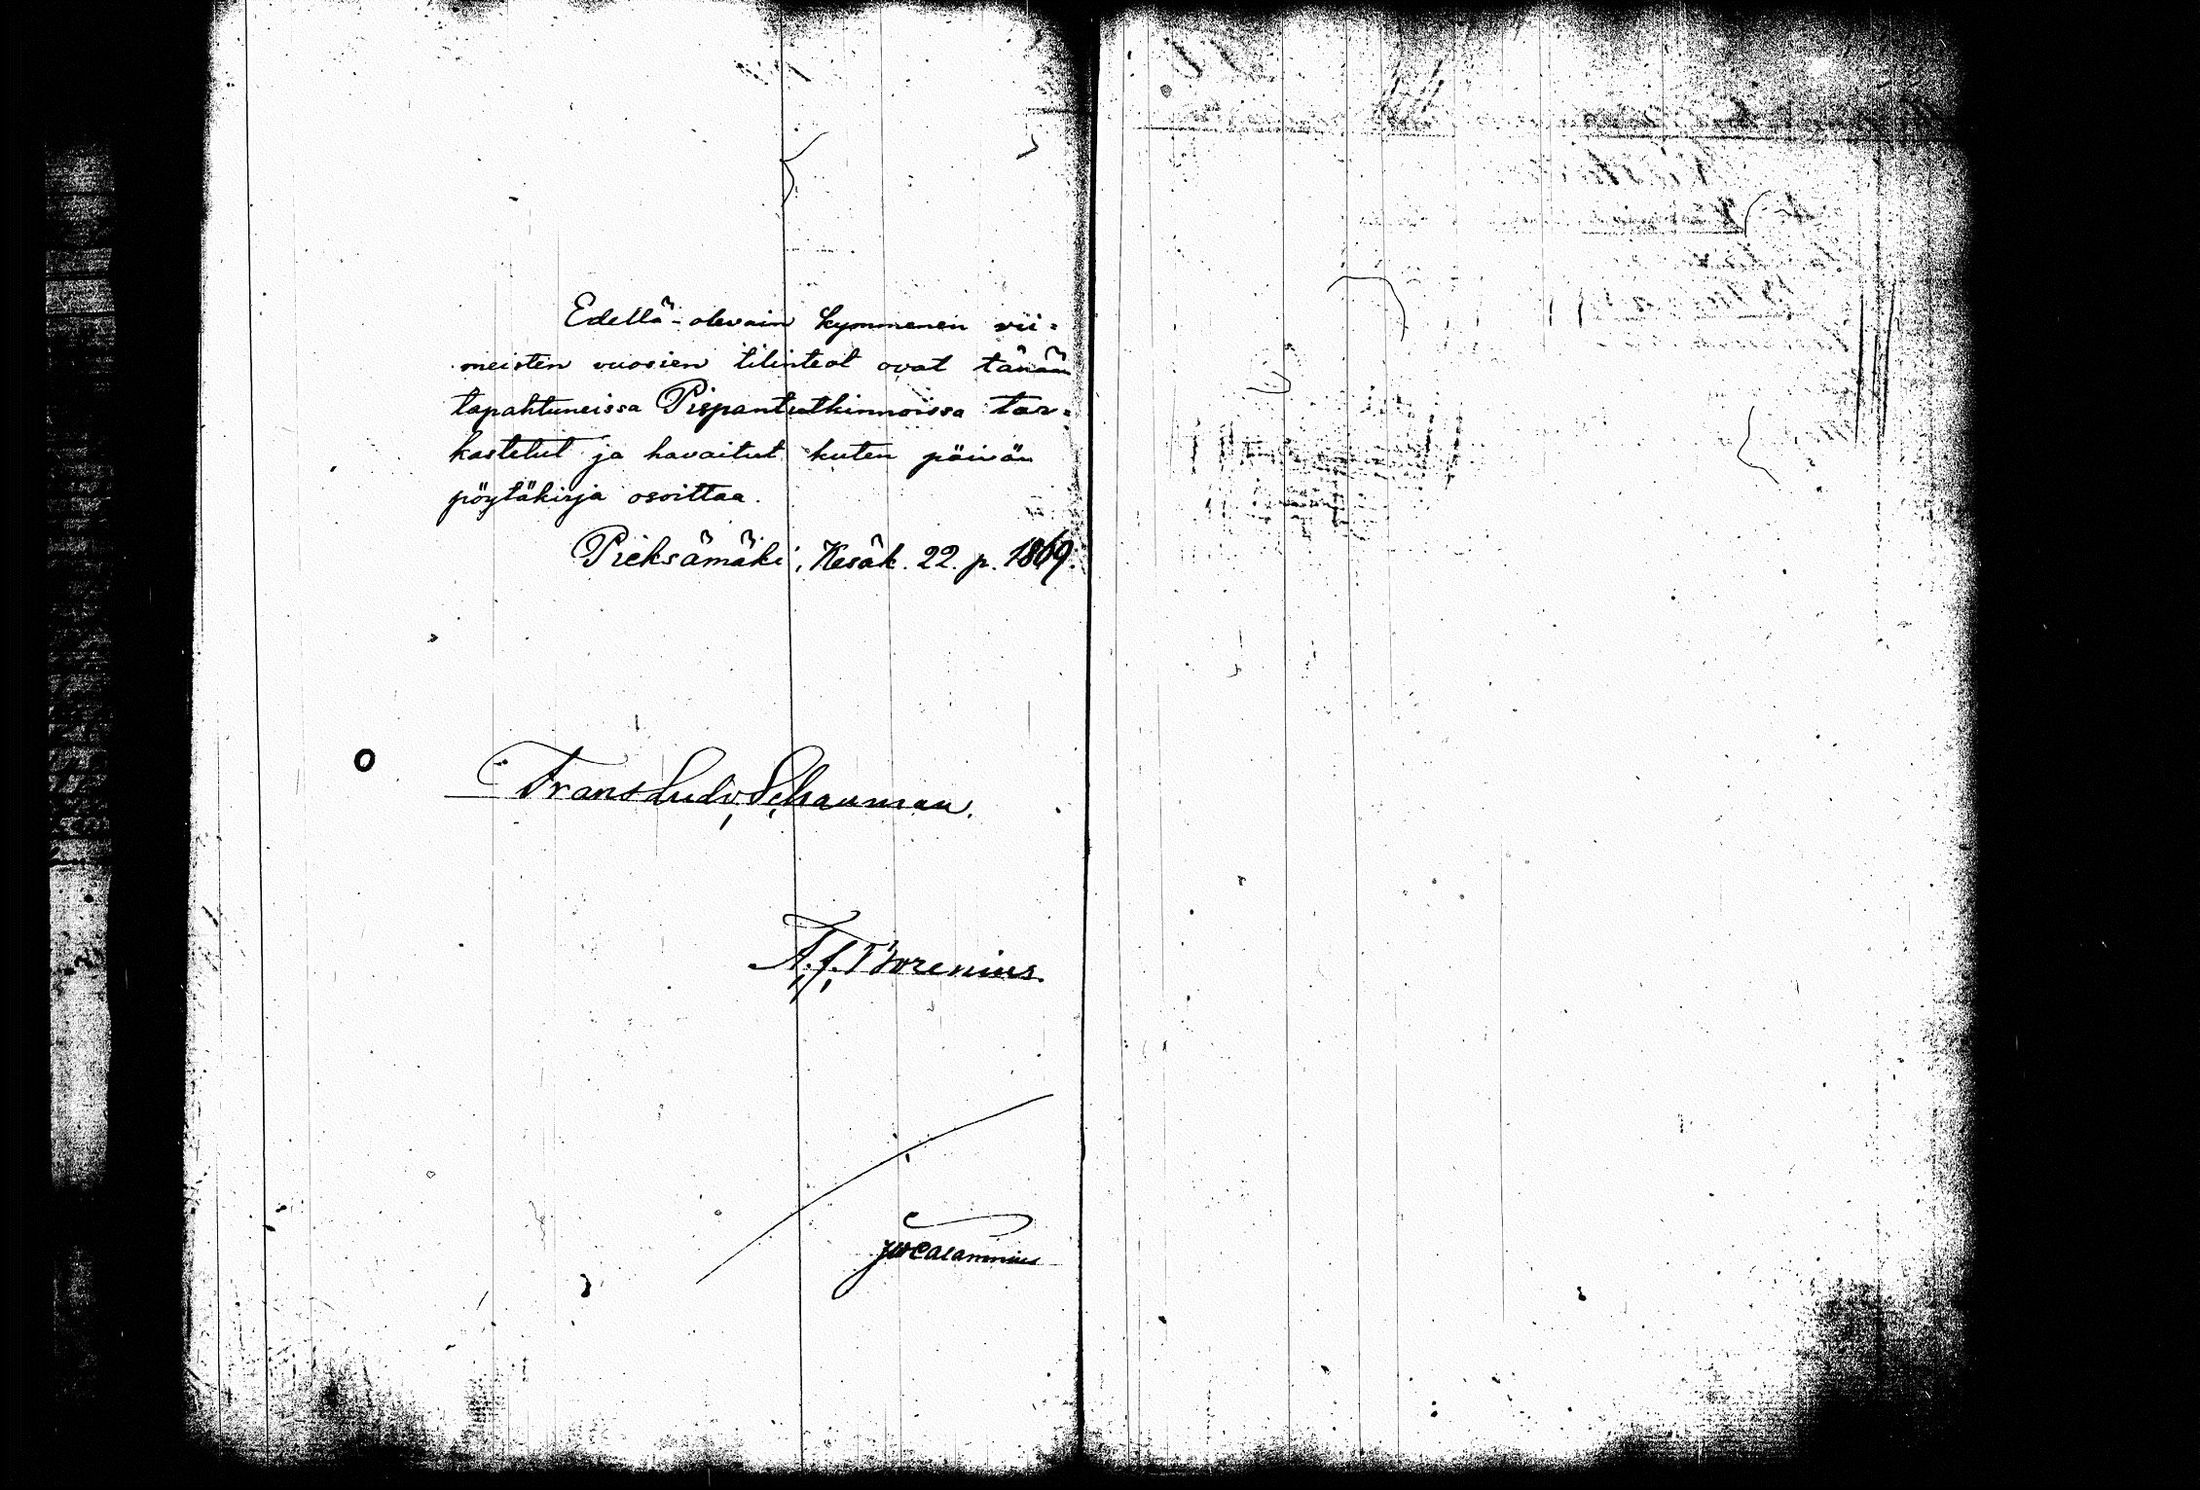 Edellä-olevain kymmenen vii=
meisten vuosien tilinteot ovat tänän
tapahtuneissa Pispantutkinnoissa tar=
kastelut ja havaitut kuten päivän
pöytäkirja osoittaa.
Pieksämäki, Kesäk. 22. p. 1869.
Frans Ludv. Schauman.
A. f. Borenius.
JW Calamnius